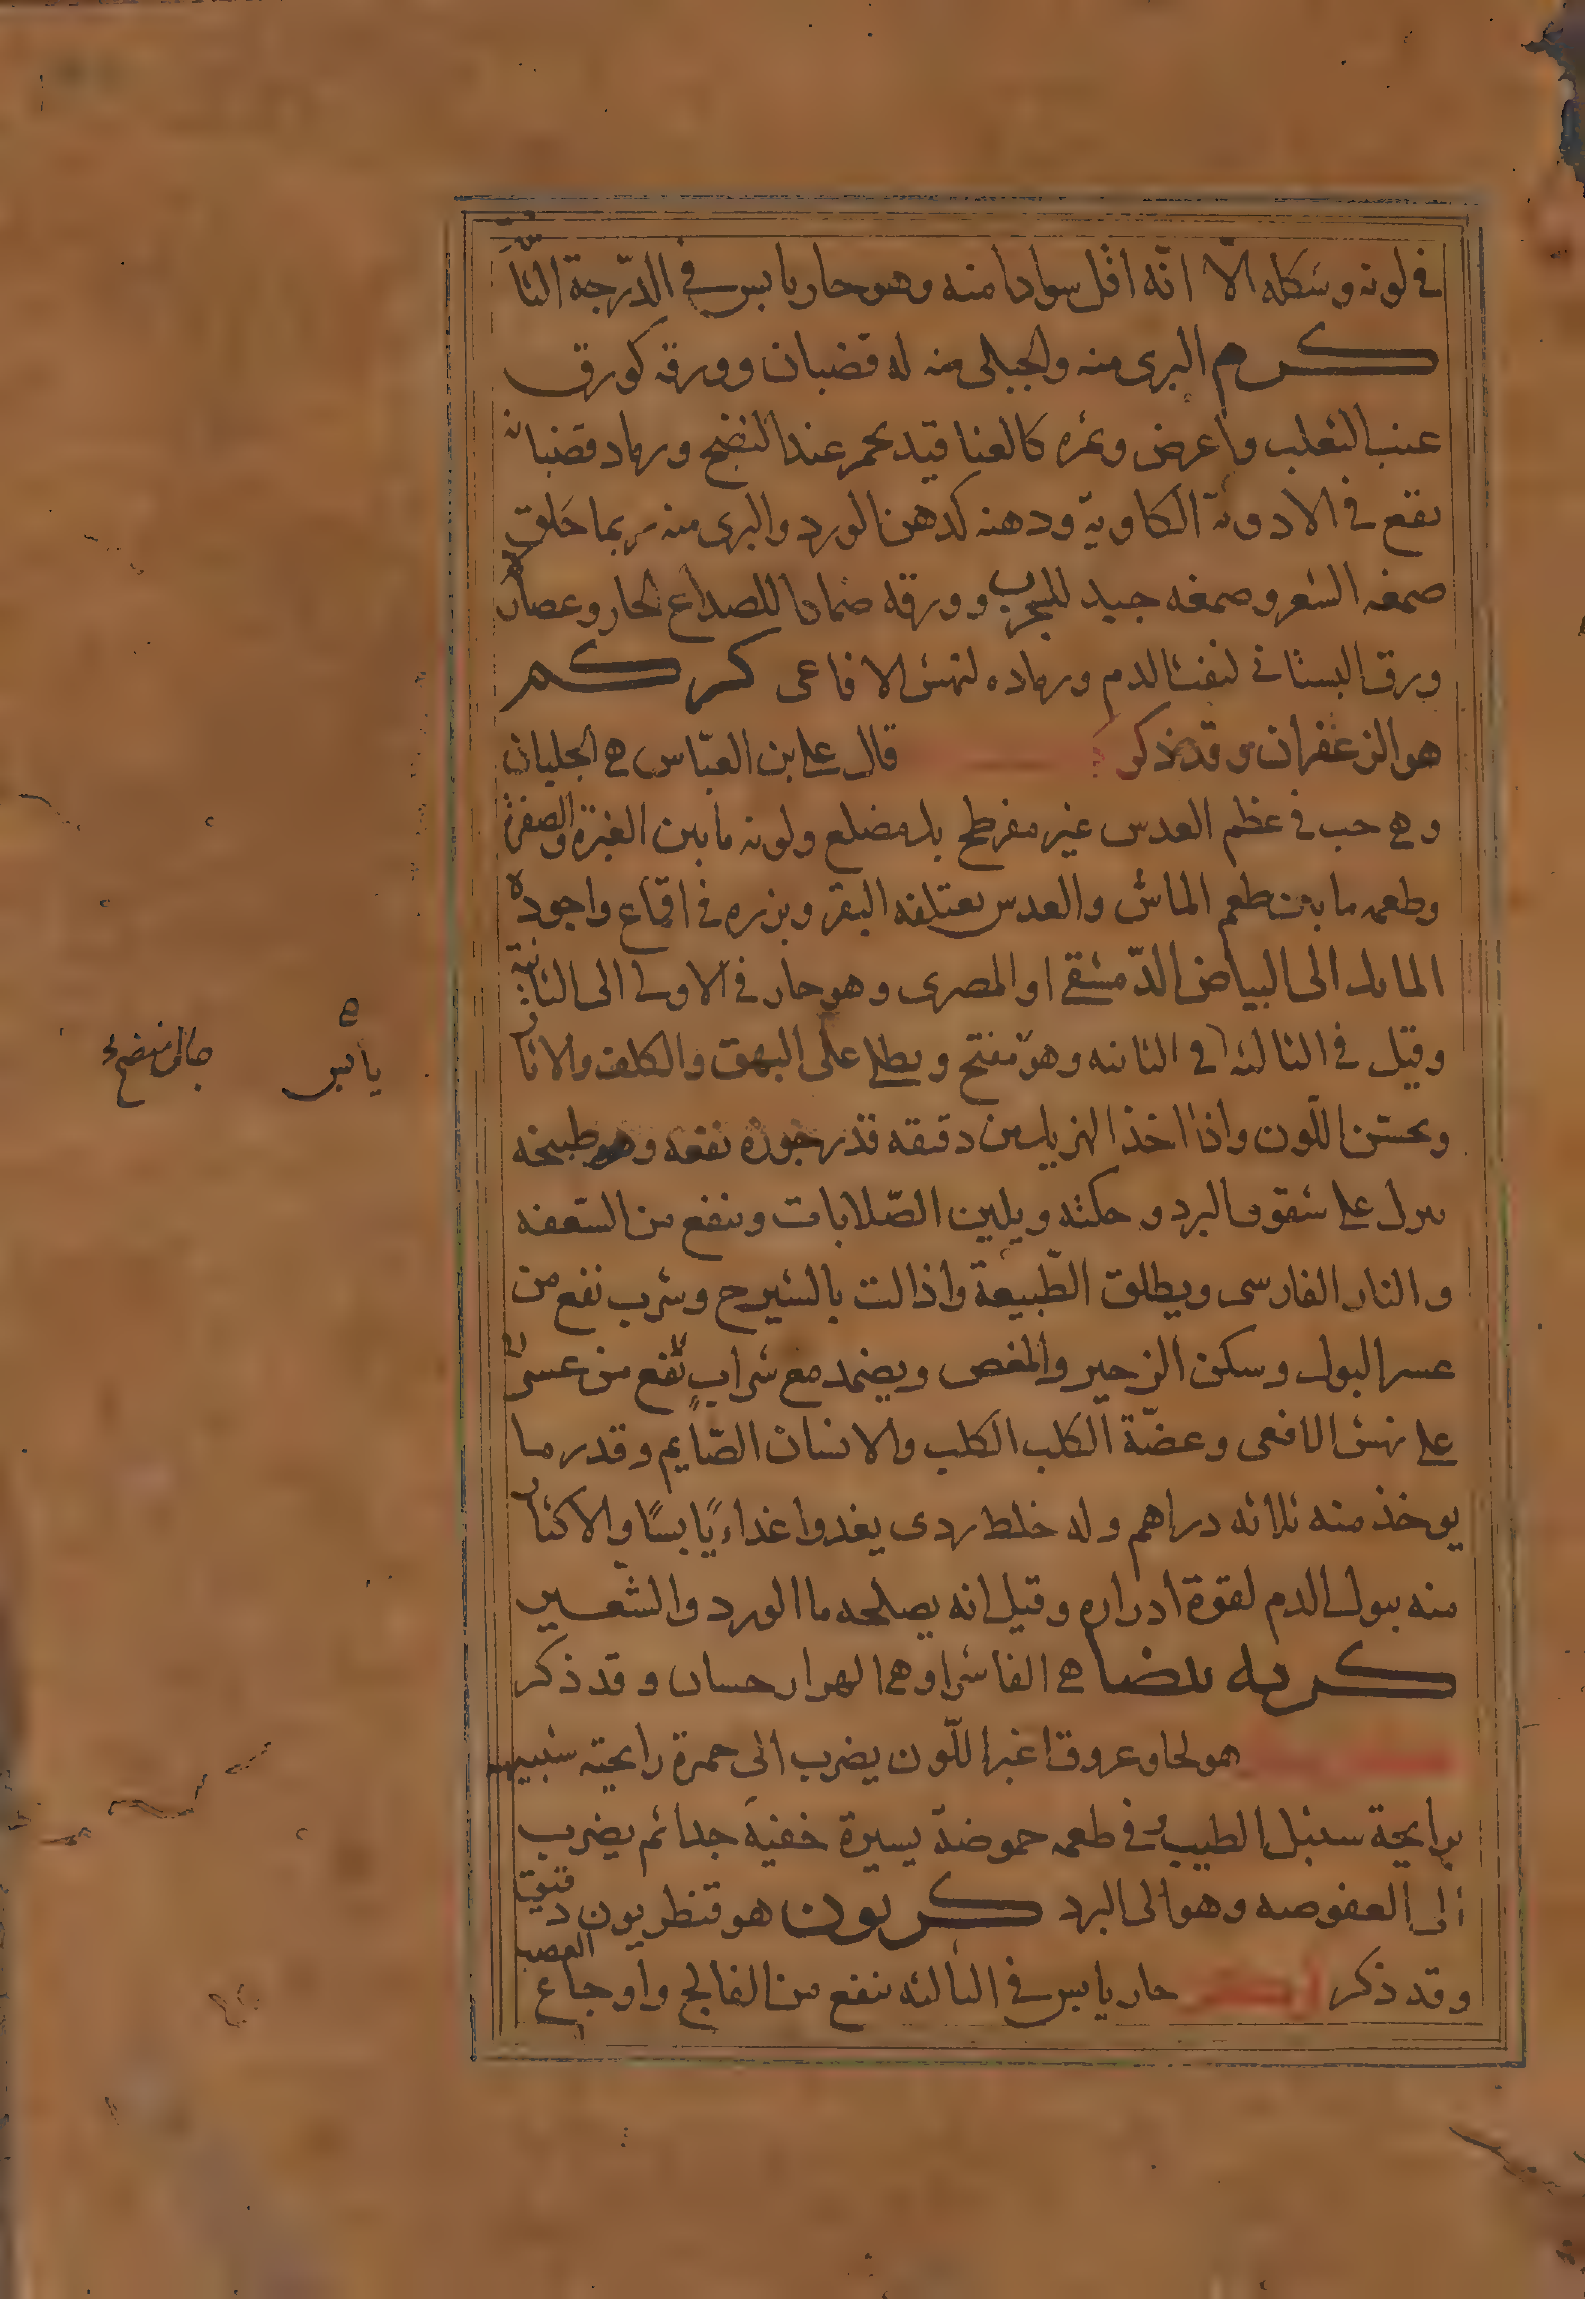 في لونه وشكله الّا انّه اقل سوادا منه وهو حار يابس في الدّرجة الثا
كرم البرى منه والجبلى منه له قضبان وورقه كورق
عنب الثعلب واعرض وثمره كالعناقيد يحمر عند النضج ورماد قضبانه
يقع في الادوية الكاوية ودهنه كدهن الورد والبرى منه ربما حلق
صمغه الشعر وصمغه جيد للجرب وورقه ضمادا للصداع الحار وعصاره
ورق البستاني لنفث الدم ورماده لنهش الافاعى كركم
هو الزعفران وقد ذكر قال على بن العبّاس هي الجلبان
وهي حب في عظم العدس غير مفرطح بل مضلع ولونه ما بين الغبرة والصفرة
وطعمه ما بين طعم الماش والعدس يعتلفه البقر وبزره في اقماع واجوده
المايل الى البياض الدّمشقي او المصرى وهو حار في الاولى الى الثانية
وقيل في الثالثة في الثانيه وهو مفتح ويطلى على البهق والكلف والاثار
ويحسّن اللّون واذا اخذ الهزيل من دقيقه قدر جوزه نفعه وهو طبيخه
على شقوق البرد وحكته ويلين الصّلابات وينفع من السّعفه
والنار الفارسى ويطلق الطّبيعة واذا لت بالشيرج وشرب نفع من
عسر البول وسكن الزحير والمغص ويضمد مع شراب
على نهش الافعى وعضّة الكلب الكلب والانسان الصّايم وقدر ما
يوخذ منه ثلاثه دراهم وله خلط ردى يغدوا غذاء يابسًا والاكثار
منه يبول الدم لقوة ادراره وقيل انه يصلحه ما الورد والشّعير
كرمه بيضا هي الفاشرا وهي الهزار حسان وقد ذكر
هو لحا وعروق اغبر اللّون يضرب الى حمرة رايحته شبيهه
برايحة سنبل الطيب وفي طعمه حموضة يسيرة خفيه جدا ثم يضرب
الى العفوصه وهو الى البرد كريون هو قنطريون دقيق
وقد ذكر حار يابس في الثالثه ينفع من الفالج واوجاع العصب
يابس